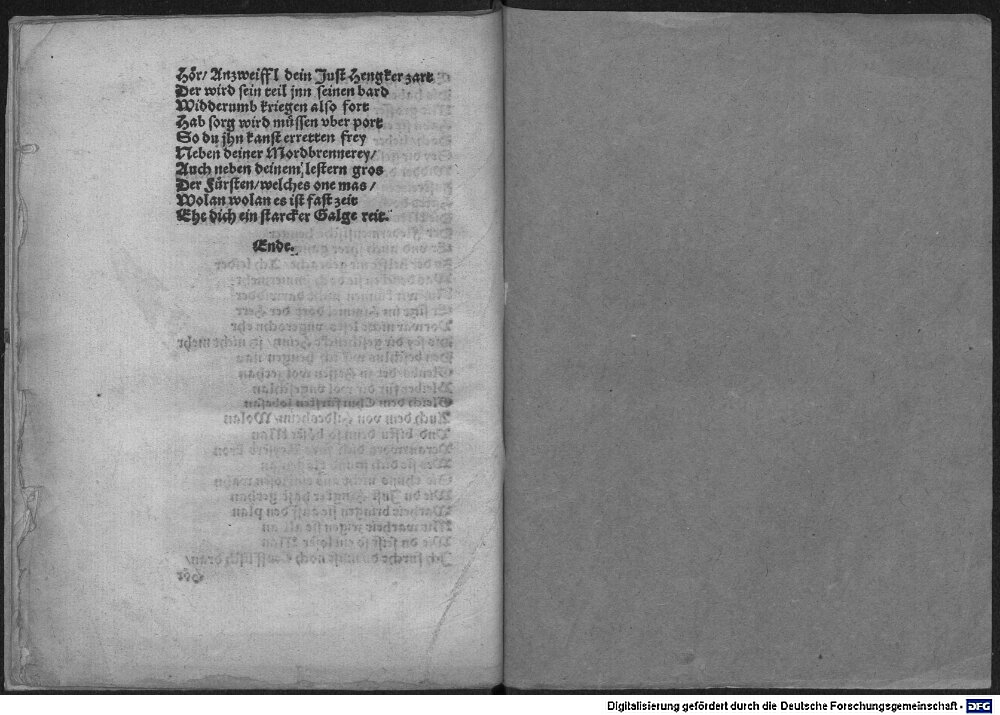 Hör/ Anzweiffl dein Just Hengker zart
Der wird sein teil jnn seinen bard
Widderumb kriegen also fort
Hab sorg wird müssen vber port
So du jhn kanst erretten frey
Neben deiner Mordbrennerey/
Auch neben deinem lestern gros
Der Fürsten/welches one mas/
Wolan wolan es ist fast zeit
Ehe dich ein starcker Galge reit.
Ende.
Digitalisierung gefördert durch die Deutsche Forschungsgemeinschaft - DFG